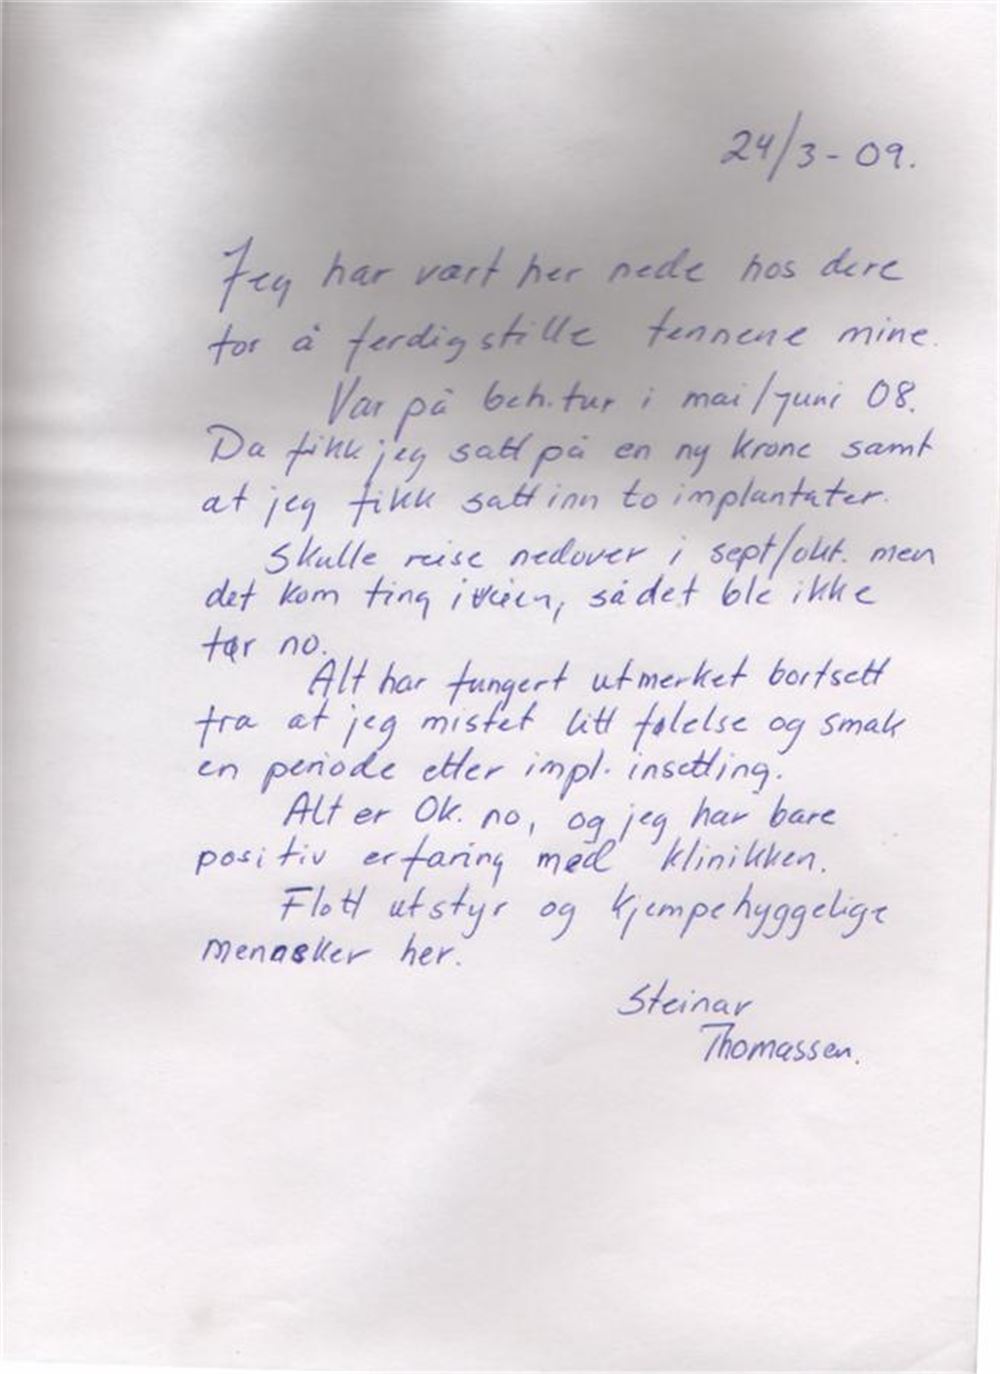 24/3-09.
Jeg har vært her nede hos dere
for å ferdigstille tennene mine.
Var på beh.tur i mai/juni 08.
Da fikk jeg satt på en ny krone samt
at jeg fikk satt inn to implantater.
Skulle reise nedover i sept/okt. men
det kom ting i veien, så det ble ikke
før no.
Alt har fungert utmerket bortsett
fra at jeg mistet litt følelse og smak
en periode etter impl. insetting.
Alt er Ok. no, og jeg har bare
positiv erfaring med klinikken.
Flott utstyr og kjempehyggelige
mennsker her.
Steinar
Thomassen.